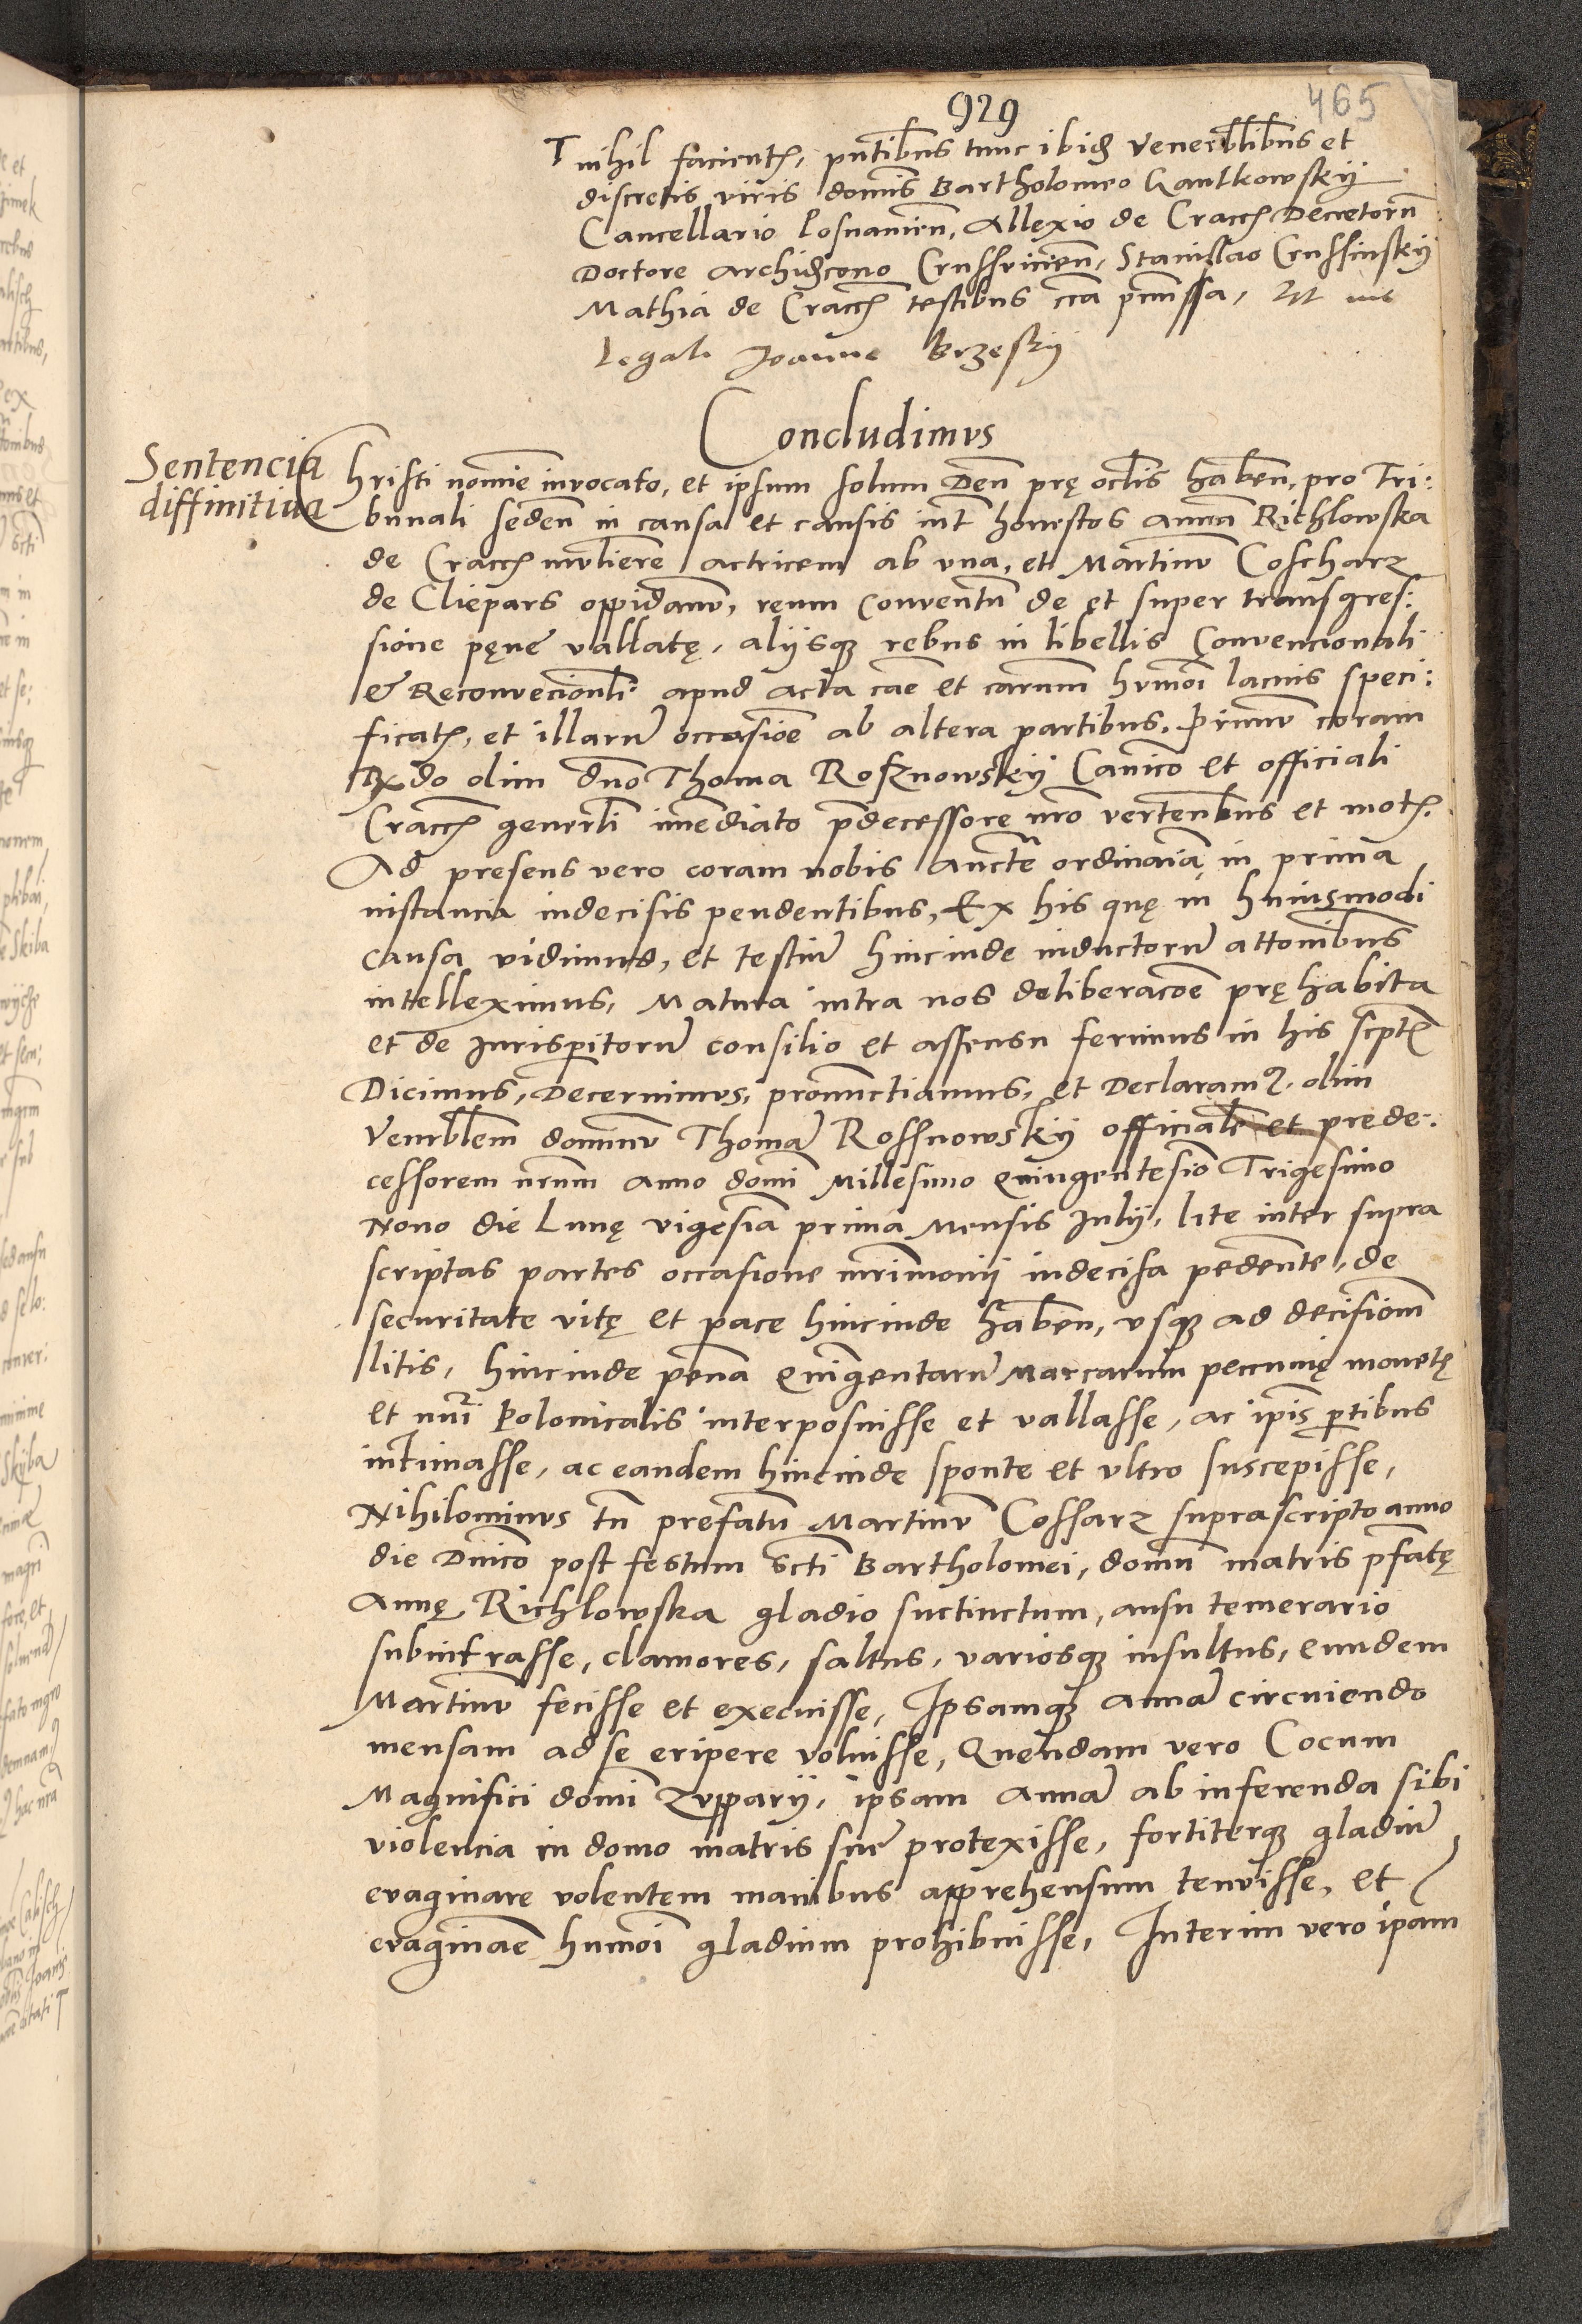 929
465
T nihil facientẽ, pñtibus tunc ibid Venerblibus et
discretis viris domis Bartholomeo Gantkowskÿ
Cancellario Posnanien, Allexio de Cracc Decretoru
Doctore archidcono Crusvicien, Stanislao Crussinskÿ
Mathia de Cracc testibus cca pmissa, Et me
legali Joanne Brzeskÿ
Concludimus
Sentencia
diffinitiua
Christi nomine invocato, et ipsum solum Deu prę oclis haben, pro Tri:
bunali seden in causa et causis int honestos Annam Richlowska
de Cracc mulierem actricem ab vna, et Martinu Coscharz
de Cliepars oppidanu, reum Conventu de et super transgres:
sione pęnę vallatę, alijsq rebus in libellis Convencionali
& Reconvecionli apud acta cae et carum hmoi lacius speci:
ficatẽ, et illaru occasioe ab altera partibus, Primu coram
Rndo olim dno Thoma Rosznowskÿ Canico et officiali
Cracc generli immediato pdecessore nro vertentbus et motẽ.
Ad presens vero coram nobis Aucte ordinaia in prima
instancia indecisis pendentibus, Ex his quę in huiusmodi
causa vidimus, et testiu hincinde inductoru attonibus
intelleximus, Matura intra nos deliberacoe pręhabita
et de Jurisperitoru consilio et assensu ferimus in his scptẽ
Dicimus, Decernimus, pronunctiamus, et Declaramꝰ, olim
Venerblem dominu Thoma Rossnowskÿ officiale et prede:
cessorem nrum anno domi Millesimo Quingentesio Trigesimo
Nono die Lunę vigesia prima Mensis Julij, lite inter supra
scriptas partes occasione mrimonij indecisa pedente, de
securitate vitę et pace hincinde haben, vsq ad decisiom
litis, hincinde pena Quingentaru Marcarum peccunię monetę
et nui Polonicalis interposuisse et vallasse, ac ipis ptibus
intimasse, ac eandem hincinde sponte et vltro suscepisse,
Nihilominus tn prefatu Martinu Cossarz suprascripto anno
die Dnico post festum Scti Bartholomei, domu matris pfatę
Annę Richlowska gladio suctinctum, ausu temerario
subintrasse, clamores, saltus, variosq insultus, eundem
Martinu fecisse et execuisse, Ipsamq Anna circuiendo
mensam ad se eripere voluisse, Quendam vero Cocum
Magnifici domi Zupparij, ipsam Anna ab inferenda sibi
violencia in domo matris suę protexisse, fortiterq gladiu
evaginare volentem manibus apprehensum tenuisse, et
evaginae humoi gladium prohibuisse, Interim vero ipam